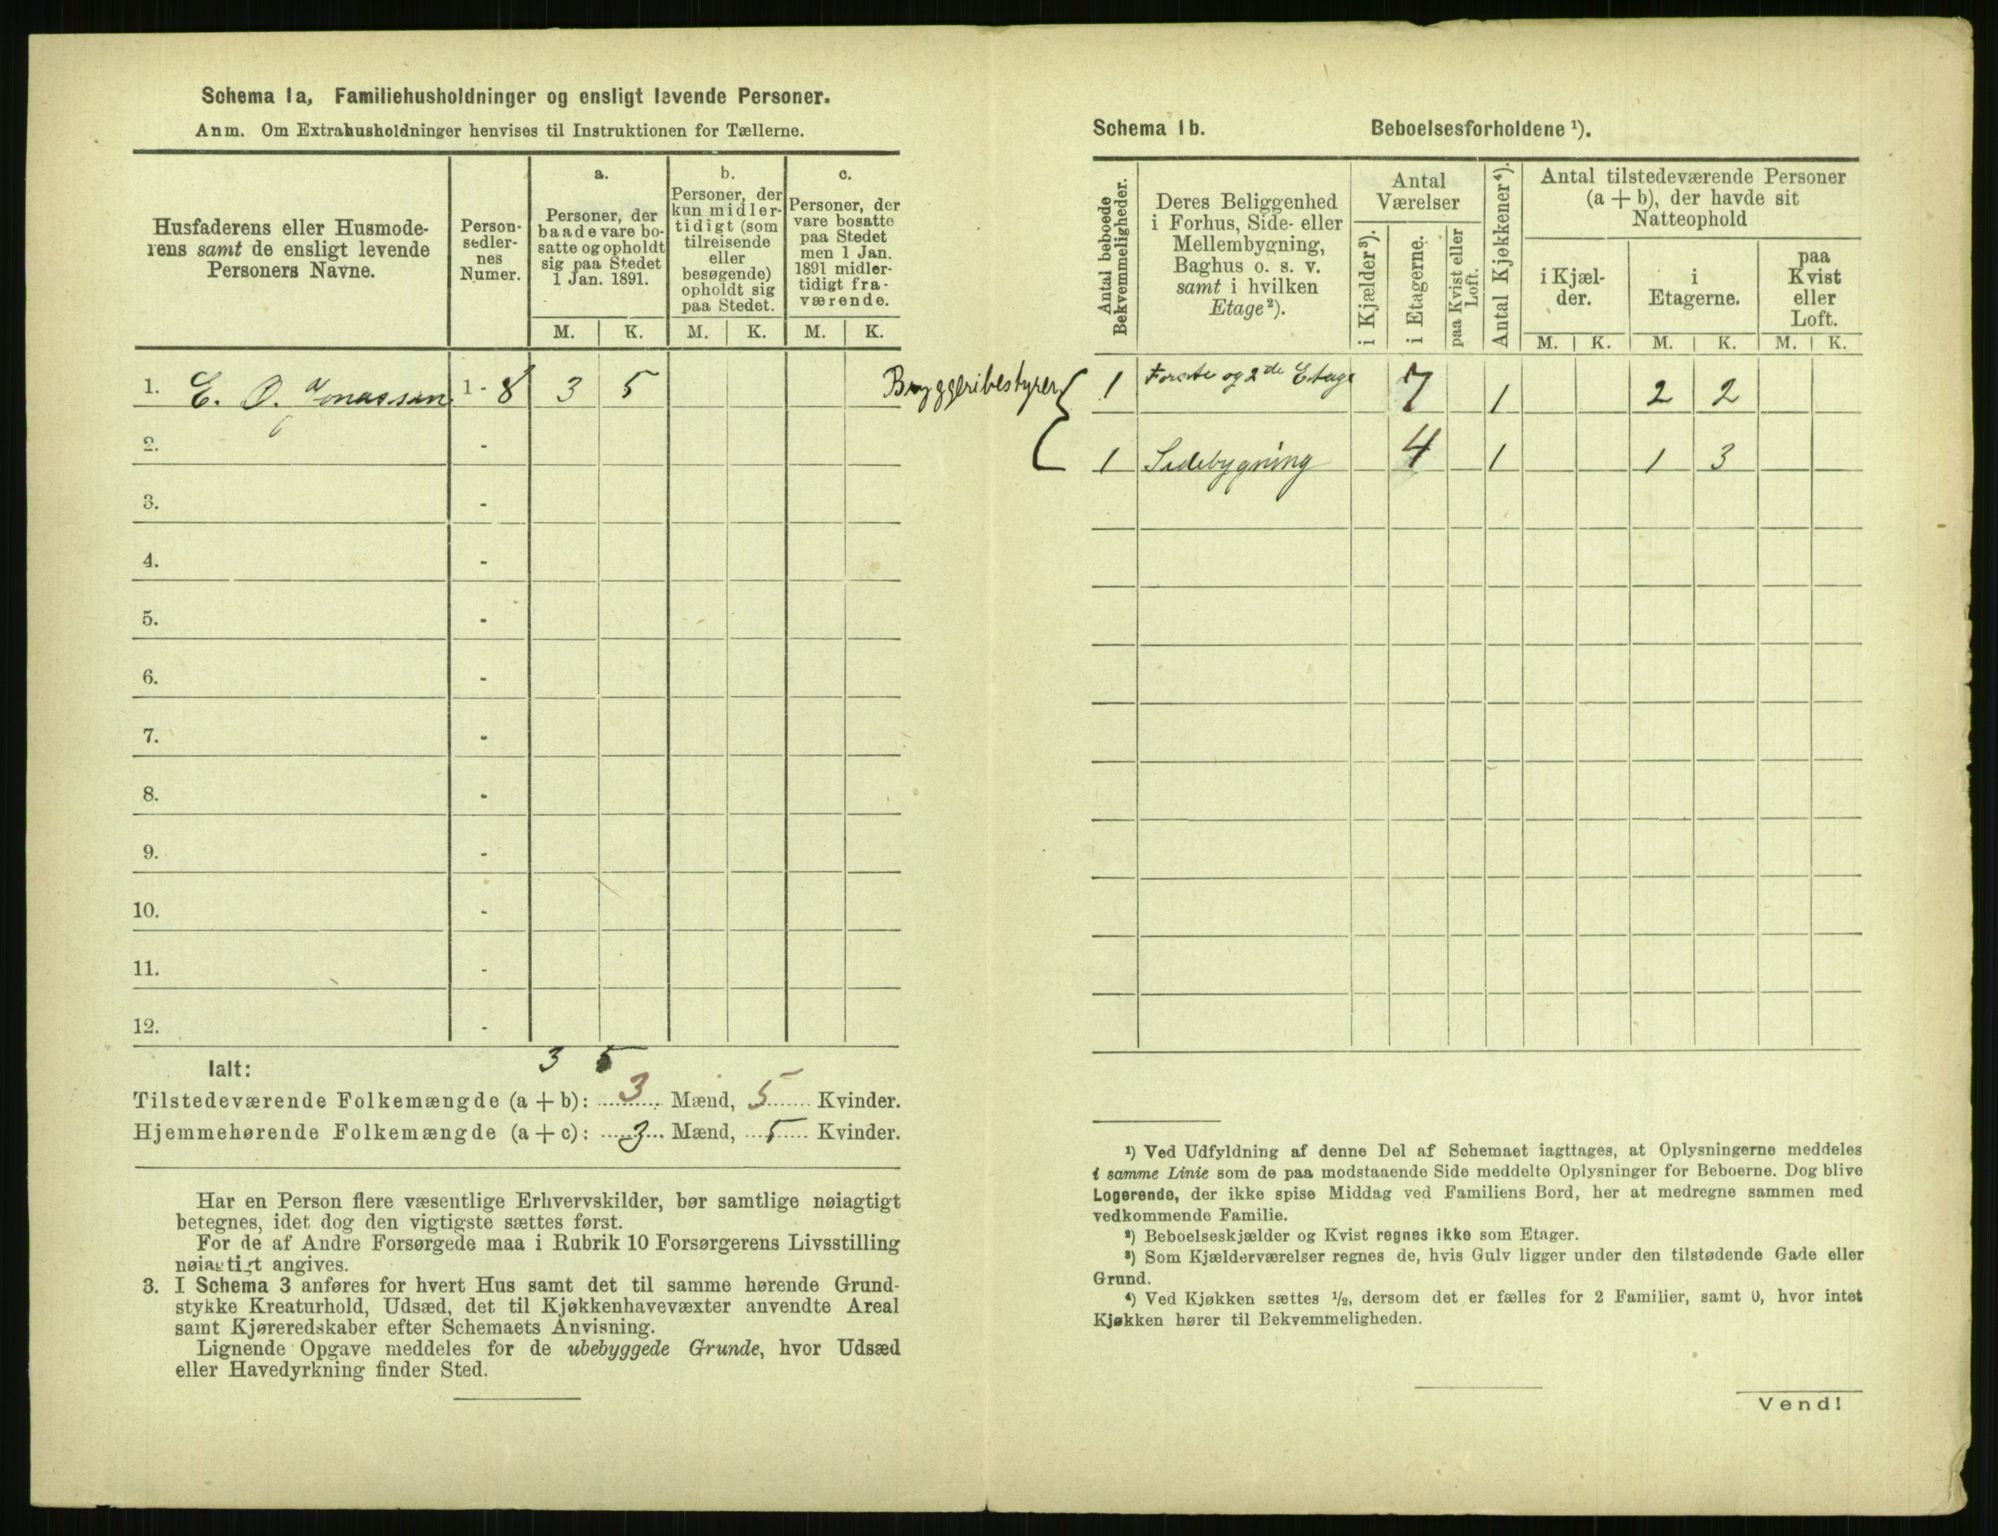 Schema 1a, Familiehusholdninger og ensligt levende Personer.
Anm. Om Extrahusholdninger henvises til Instruktionen for Tællerne.
Husfaderens eller Husmode-
rens samt de ensligt levende
Personers Navne.
Person-
sedler-
nes
Numer.
a.
Personer, der
baade vare bo-
satte og opholdt
sig paa Stedet
1 Jan. 1891.
b.
Personer, der
kun midler-
tidigt (som
tilreisende
eller
besøgende)
opholdt sig
paa Stedet.
c.
Personer, der
vare bosatte
paa Stedet
men 1 Jan.
1891 midler-
tidigt fra-
værende.
M. K. M. K. M. K.
1. E. O. Jonassen 1 - 8 3 5
2. -
3. -
4. -
5. -
6. -
7. -
8. -
9. -
10. -
11. -
12. -
Ialt: 3 5
Tilstedeværende Folkemængde (a + b): 3 Mænd, 5 Kvinder.
Hjemmehørende Folkemængde (a + c): 3 Mænd, 5 Kvinder.
Har en Person flere væsentlige Erhvervskilder, bør samtlige nøiagtigt
betegnes, idet dog den vigtigste sættes først.
For de af Andre Forsørgede maa i Rubrik 10 Forsørgerens Livsstilling
nøiagtigt angives.
3. I Schema 3 anføres for hvert Hus samt det til samme hørende Grund-
stykke Kreaturhold, Udsæd, det til Kjøkkenhavevæxter anvendte Areal
samt Kjøreredskaber efter Schemaets Anvisning.
Lignende Opgave meddeles for de ubebyggede Grunde, hvor Udsæd
eller Havedyrkning finder Sted.
Schema 1b. Beboelsesforholdene ¹).
Antal beboede
Bekvemmeligheder.
Deres Beliggenhed
i Forhus, Side- eller
Mellembygning,
Baghus o. s. v.
samt i hvilken
Etage²).
Antal
Værelser
i Kjælder³).
i Etagerne.
paa Kvist eller
Loft.
Antal Kjøkkener⁴).
Antal tilstedeværende Personer
(a + b), der havde sit
Natteophold
i Kjæl-
der.
i
Etagerne.
paa
Kvist
eller
Loft.
M. K. M. K. M. K.
Bryggeribestyrer { 1 Første og 2de Etage 7 1 2 2
1 Sidebygning 4 1 1 3
¹) Ved Udfyldning af denne Del af Schemaet iagttages, at Oplysningerne meddeles
i samme Linie som de paa modstaaende Side meddelte Oplysninger for Beboerne. Dog blive
Logerende, der ikke spise Middag ved Familiens Bord, her at medregne sammen med
vedkommende Familie.
²) Beboelseskjælder og Kvist regnes ikke som Etager.
³) Som Kjælderværelser regnes de, hvis Gulv ligger under den tilstødende Gade eller
Grund.
⁴) Ved Kjøkken sættes ½, dersom det er fælles for 2 Familier, samt 0, hvor intet
Kjøkken hører til Bekvemmeligheden.
Vend!